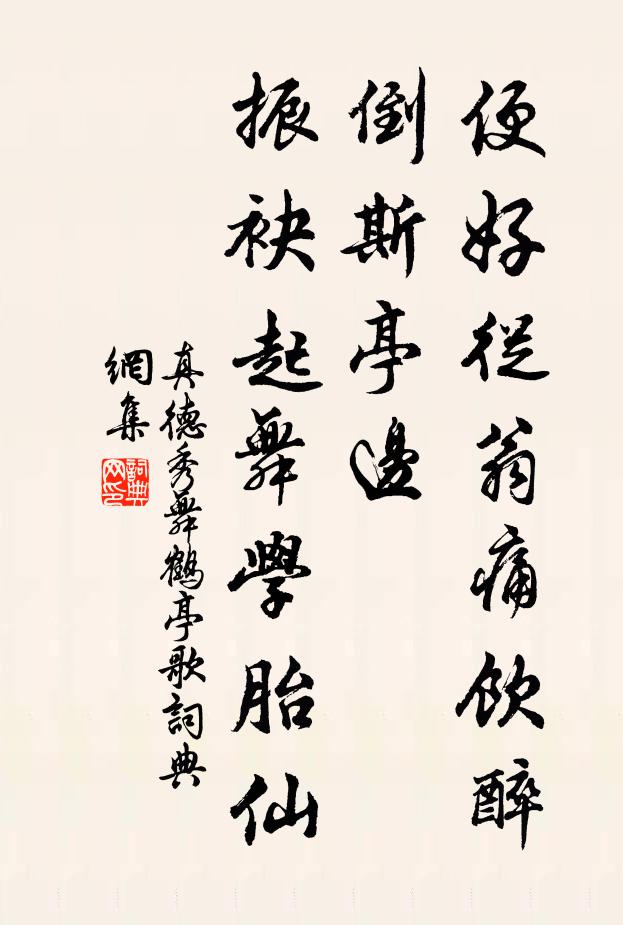 便好從翁痛飲醉
倒斯亭邊
振袂起舞學胎仙
真德秀舞鶴亭歌詞典
網集
詞典
网印